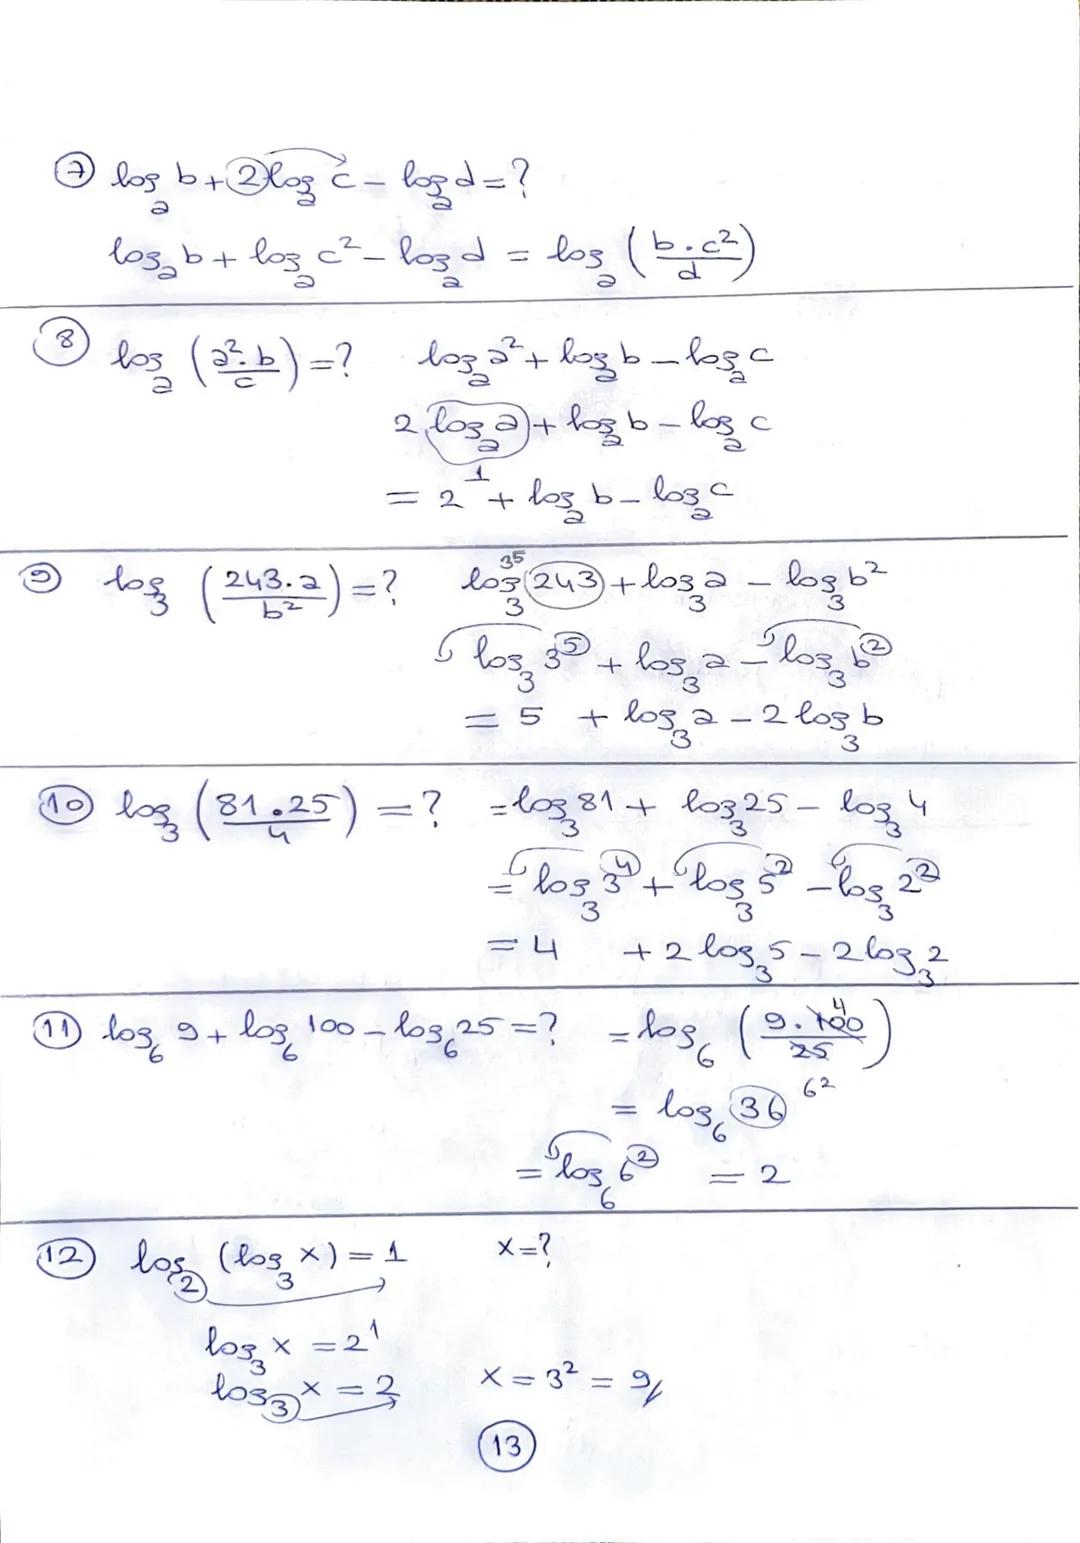 7 logₐ b + 2 logₐ c - logₐ d = ?
logₐ b + logₐ c² - logₐ d = logₐ (b.c²/d)
8 logₐ (a².b/c) = ? logₐ a² + logₐ b - logₐ c
2 logₐ a + logₐ b - logₐ c
1
= 2 + logₐ b - logₐ c
9 log₃ (243.a/b²) = ? log₃ 243 + log₃ a - log₃ b²
3⁵
log₃ 3⁵ + log₃ a - log₃ b²
= 5 + log₃ a - 2 log₃ b
10 log₃ (81.25/4) = ? = log₃ 81 + log₃ 25 - log₃ 4
= log₃ 3⁴ + log₃ 5² - log₃ 2²
= 4 + 2 log₃ 5 - 2 log₃ 2
11 log₆ 9 + log₆ 100 - log₆ 25 = ? = log₆ (9.100/25)
4
= log₆ 36 6²
= log₆ 6² = 2
12 log₂ (log₃ x) = 1 x = ?
log₃ x = 2¹
log₃ x = 2 x = 3² = 9
13